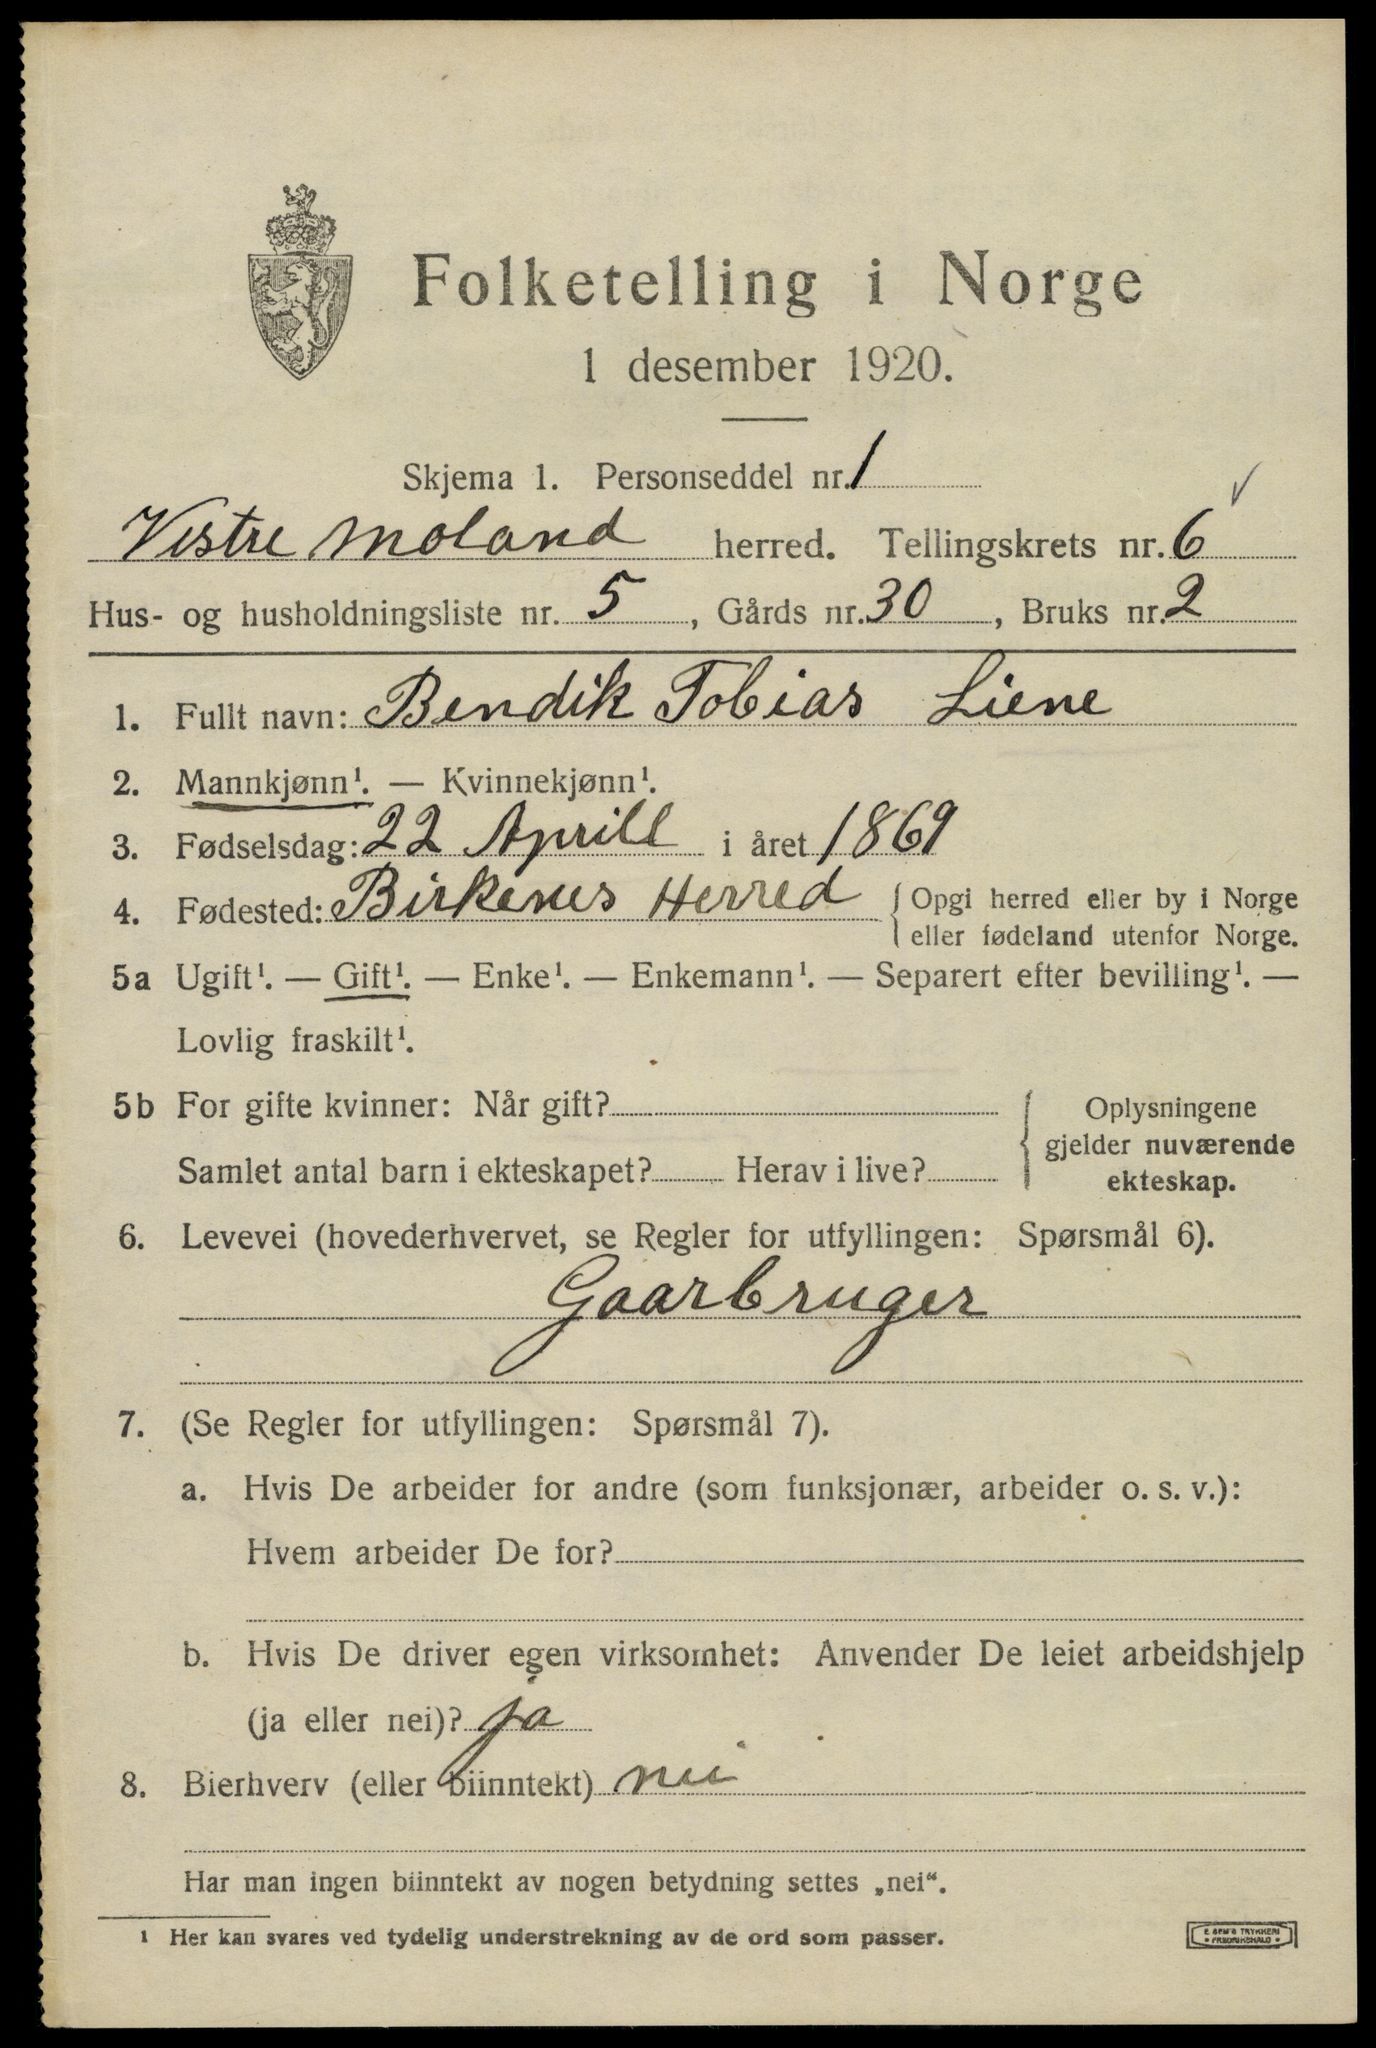 Folketelling i Norge
1 desember 1920.
Skjema 1. Personseddel nr. 1
Vestre Moland herred. Tellingskrets nr. 6
Hus- og husholdningsliste nr. 5, Gårds nr. 30, Bruks nr. 2
1. Fullt navn: Bendik Tobias Liene
2. Mannkjønn¹. — Kvinnekjønn¹.
3. Fødselsdag: 22 Aprill i året 1869
4. Fødested: Birkenes Herred {Opgi herred eller by i Norge
eller fødeland utenfor Norge.
5a Ugift¹. — Gift¹. — Enke¹. — Enkemann¹. — Separert efter bevilling¹. —
Lovlig fraskilt¹.
5b For gifte kvinner: Når gift? {Oplysningene
gjelder nuværende
Samlet antal barn i ekteskapet? Herav i live? ekteskap.
6. Levevei (hovederhvervet, se Regler for utfyllingen: Spørsmål 6).
Gaarbruger
7. (Se Regler for utfyllingen: Spørsmål 7).
a. Hvis De arbeider for andre (som funksjonær, arbeider o. s. v.):
Hvem arbeider De for?
b. Hvis De driver egen virksomhet: Anvender De leiet arbeidshjelp
(ja eller nei)? ja
8. Bierhverv (eller biinntekt) nei
Har man ingen biinntekt av nogen betydning settes „nei“.
¹ Her kan svares ved tydelig understrekning av de ord som passer.
E SEM'S TRYKKERI
• FREDRIKSHALD •